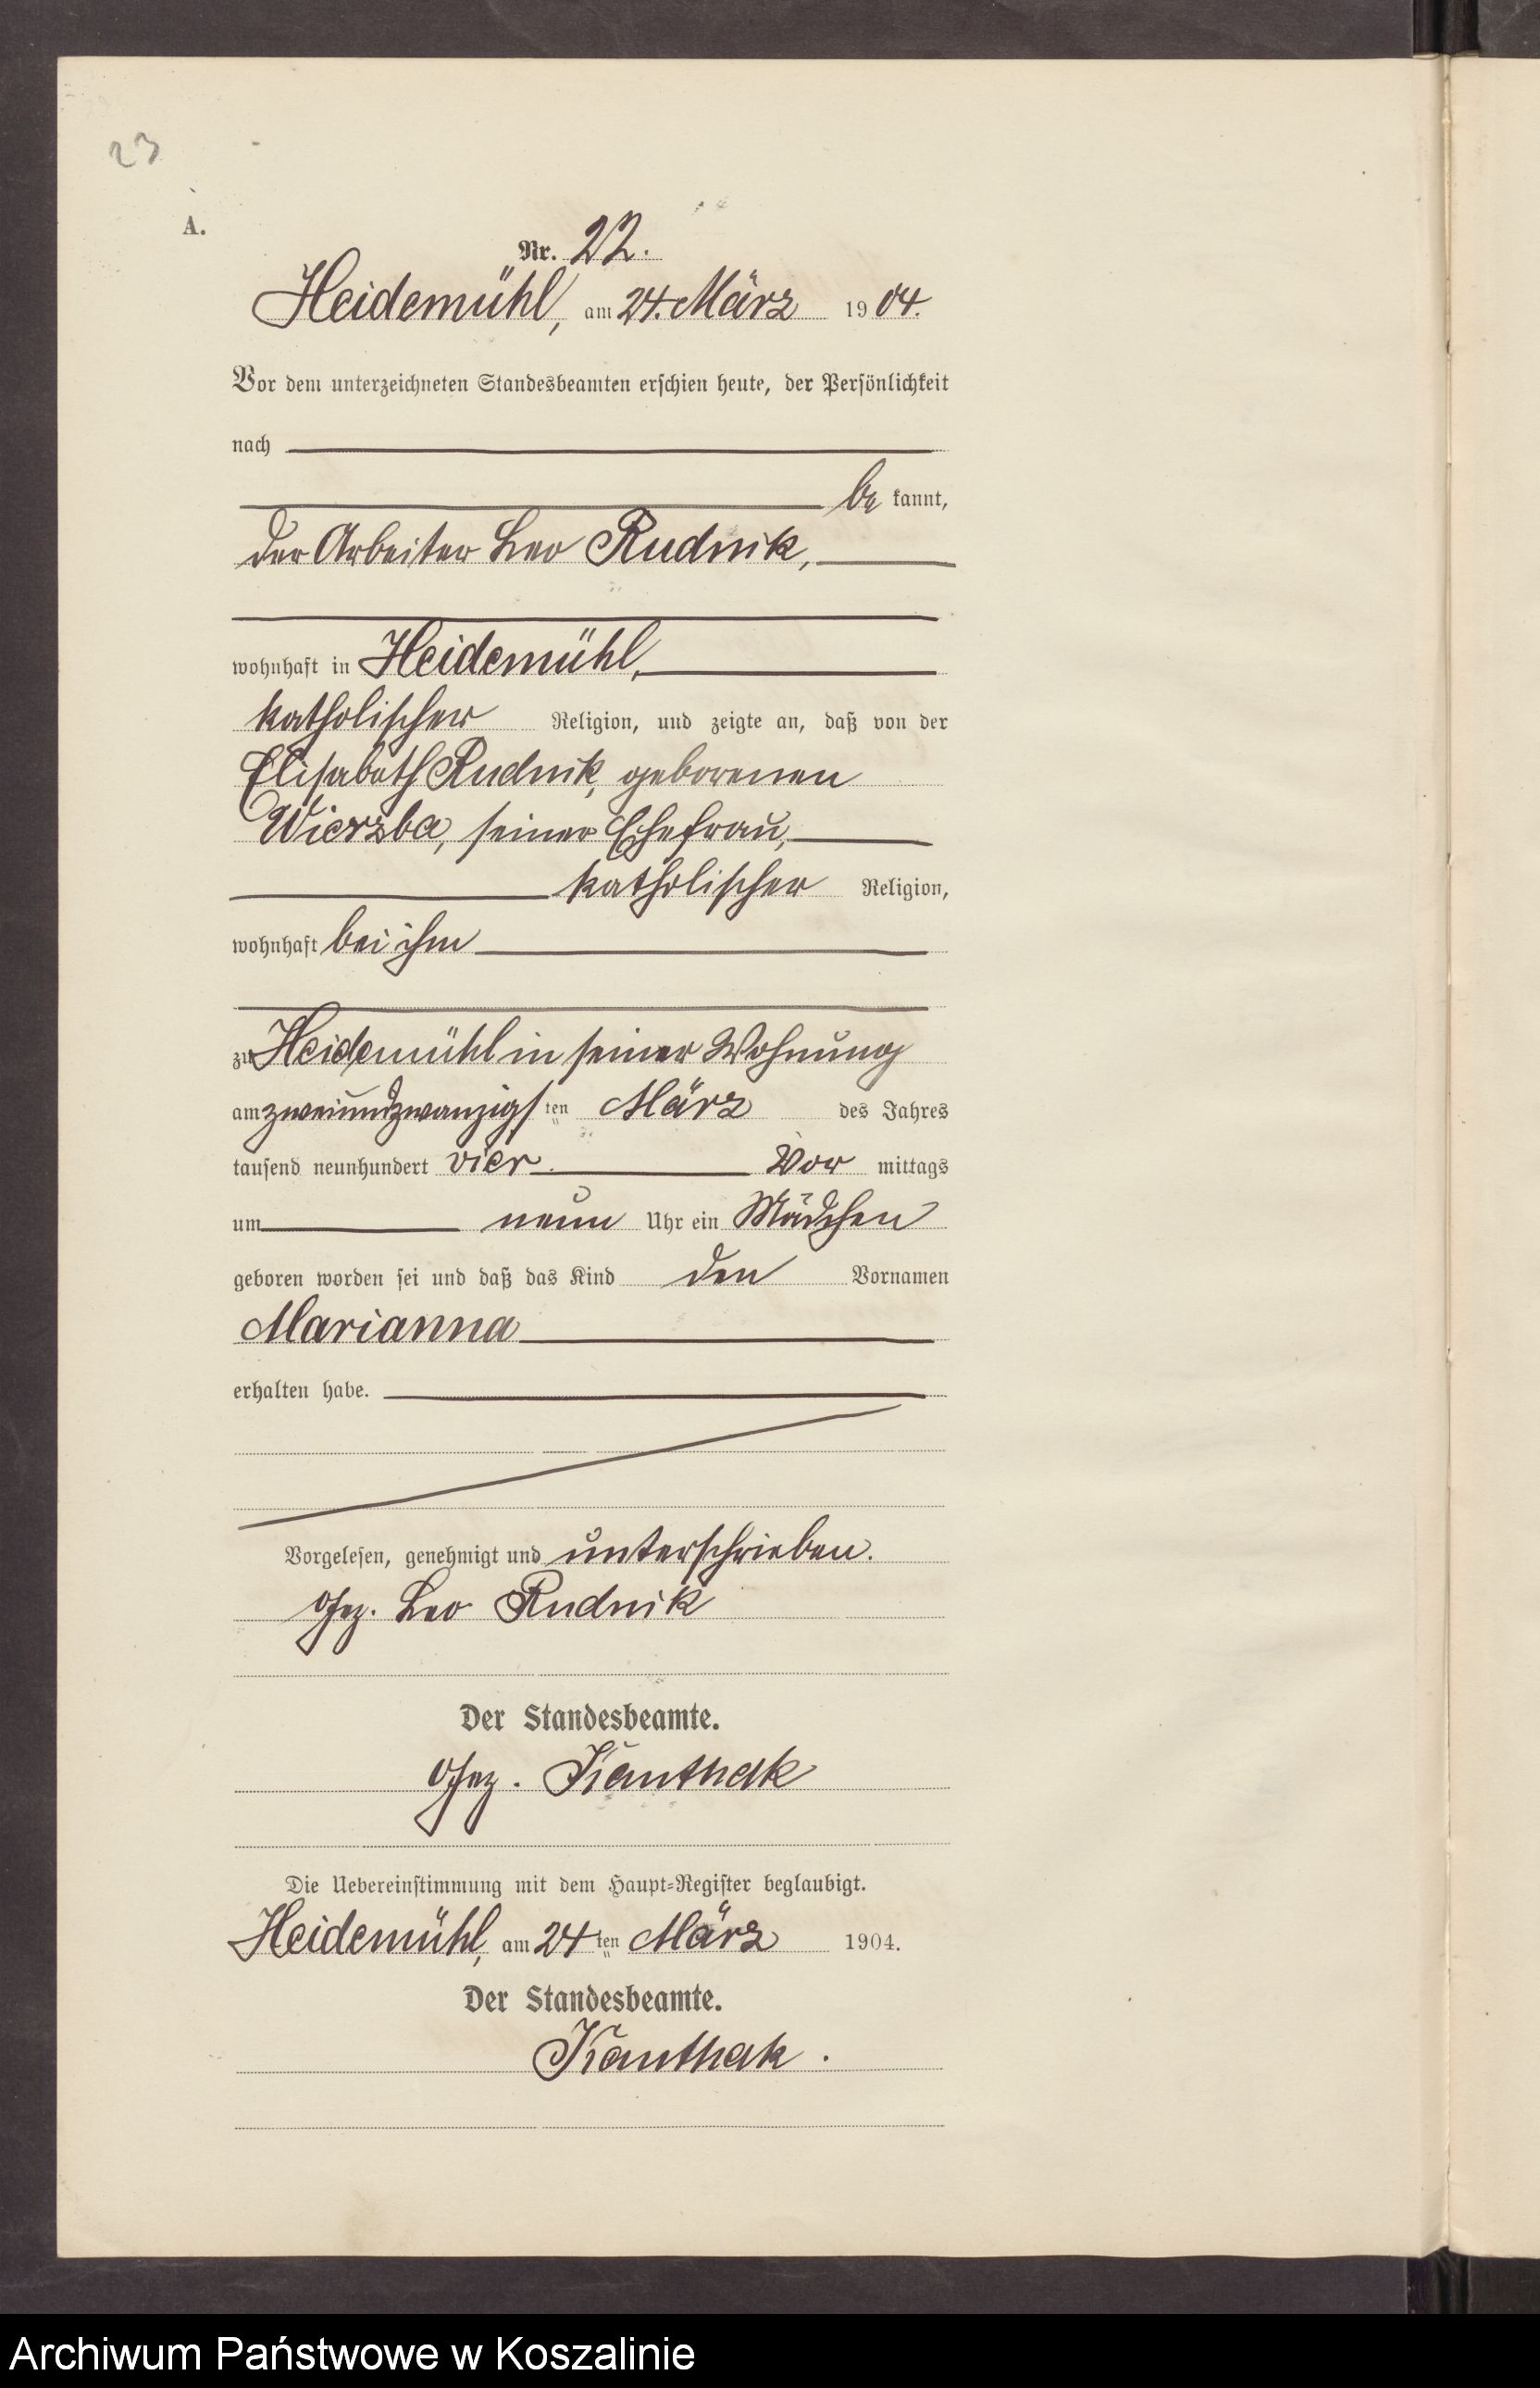 23
A.
Nr. 22.
Heidemühl, am 24. März 1904.
Vor dem unterzeichneten Standesbeamten erschien heute, der Persönlichkeit
nach
be kannt,
der Arbeiter Leo Rudnik,
wohnhaft in Heidemühl,
katholischer Religion, und zeigte an, daß von der
Elisabeth Rudnik, geborenen
Wierzba, seiner Ehefrau,
katholischer Religion,
wohnhaft bei ihm
zu Heidemühl in seiner Wohnung
am zweiundzwanzigsten März des Jahres
tausend neunhundert vier. Vor mittags
um neun Uhr ein Mädchen
geboren worden sei und daß das Kind den Vornamen
Marianna
erhalten habe.
Vorgelesen, genehmigt und unterschrieben.
Gez. Leo Rudnik
Der Standesbeamte.
Gez. Kanthak
Die Uebereinstimmung mit dem Haupt-Register beglaubigt.
Heidemühl, am 24ten März 1904.
Der Standesbeamte.
Kanthak.
Archiwum Państwowe w Koszalinie